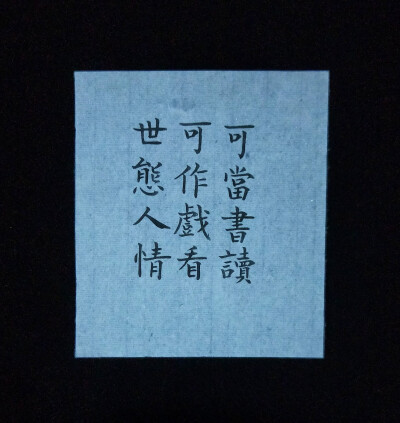 可當書讀
可作戲看
世態人情